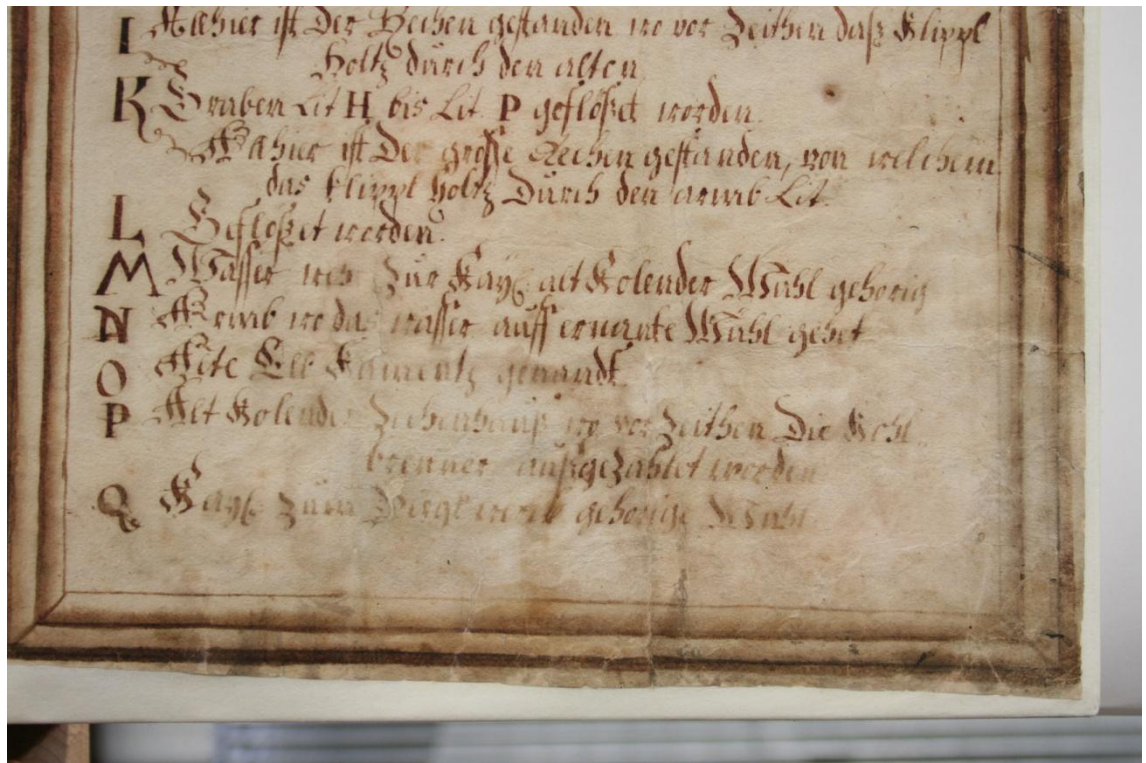 I Alhier ist Der Rechen gestanden wo vor Zeithen daß Klippl
Holtz durch den alten
K Graben Lit H bis Lit P geflößet worden.
Alhier ist Der große Rechen gestanden, von welchem
das klippl holtz Durch den Lit.
L Geflößet worden.
M Wasser Zur Kayß alt Kolender Mühl gehörig
N wo das wasser auff ermante Mühl gehet
O Alte Elb genandt
P Alt Kolender Zechenhauß wo vor Zeithen Die Kohl
brenner außgezahlet worden
Q Kayß zum gehörige Mühl